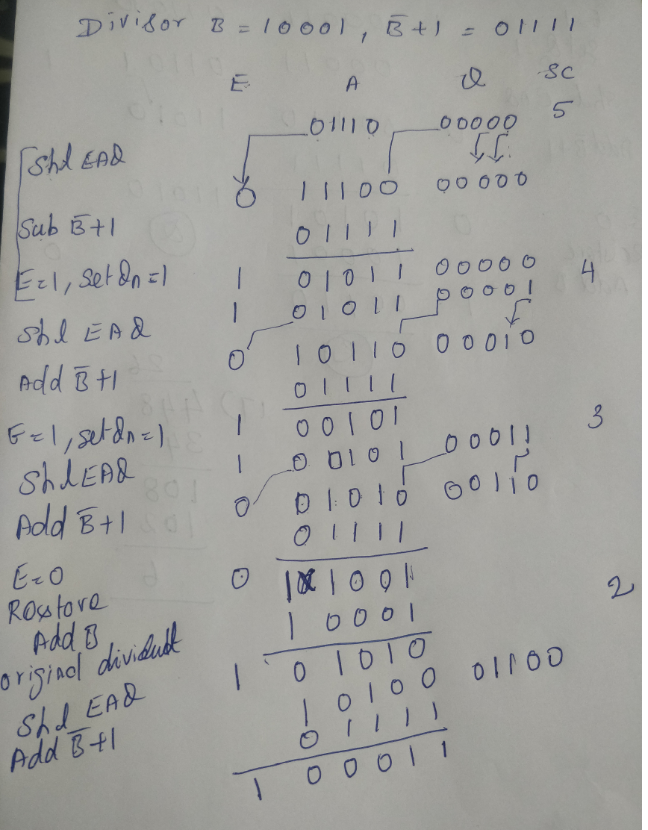 Divisor B = 10001, B̅+1 = 01111
E A Q SC
01110 00000 5
Shl EAQ
0 11100 00000
Sub B̅+1 01111
E=1, set Qn=1 1 01011 00000 4
1 01011 00001
Shl EAQ
0 10110 00010
Add B̅+1 01111
E=1, set Qn=1 1 00101 3
1 00101 00011
Shl EAQ
0 01010 00110
Add B̅+1 01111
E=0 0 11001
Restore 2
Add B 10001
original dividend 1 01010
Shl EAQ 10100 01100
Add B̅+1 01111
1 00011